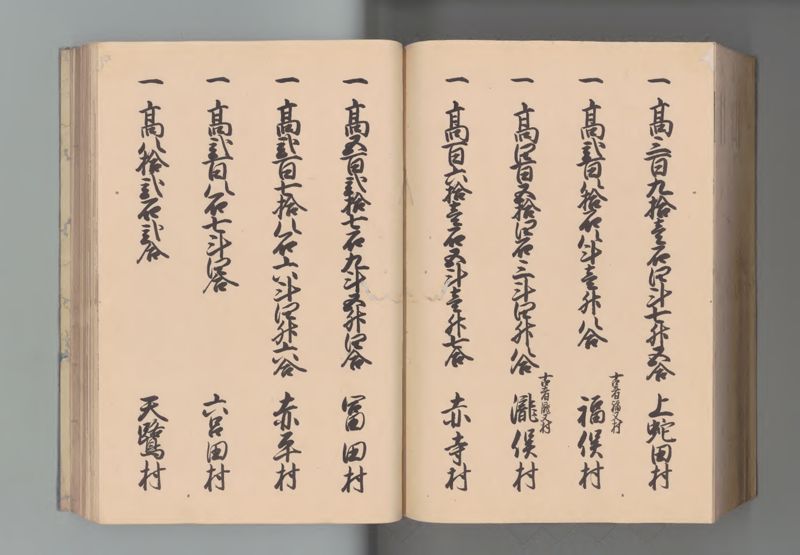 一 高三百九拾壱石四斗七升五合 上蛇田村
一 高弐百八拾石八斗壱升八合 古者福又村 福俣村
一 高四百五拾四石三斗四升八合 古者瀧又村 瀧俣村
一 高百六拾壱石五斗壱升七合 赤寺村
一 高五百弐拾七石九斗五升四合 冨田村
一 高弐百七拾八石六斗四升六合 赤平村
一 高弐百八石七斗四合 六呂田村
一 高八拾弐石弐合 天鷺村